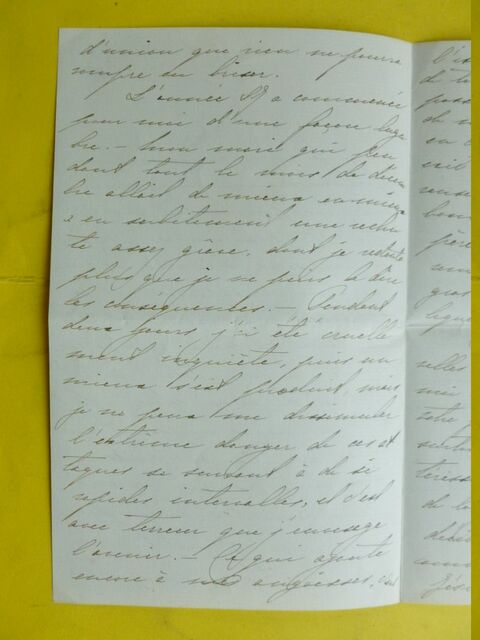 d'union que rien ne pourra
rompre ou briser.
L'année 89 a commencée
pour moi d'une façon lugu
bre. — mon mari qui pen
dant tout le mois de décem
bre allait de mieux en mieux
a eu subitement une rechu
te assez grave, dont je redoute
plus que je ne puis le dire
les conséquences. — Pendant
deux jours j'ai été cruelle
ment inquiète, puis un
mieux s'est produit, mais
je ne peux me dissimuler
l'extrème danger de ces at
taques se suivant à de si
rapides intervalles, et c'est
avec terreur que j'envisage
l'avenir. — Ce qui ajoute
encore à mes angoisses, c'est